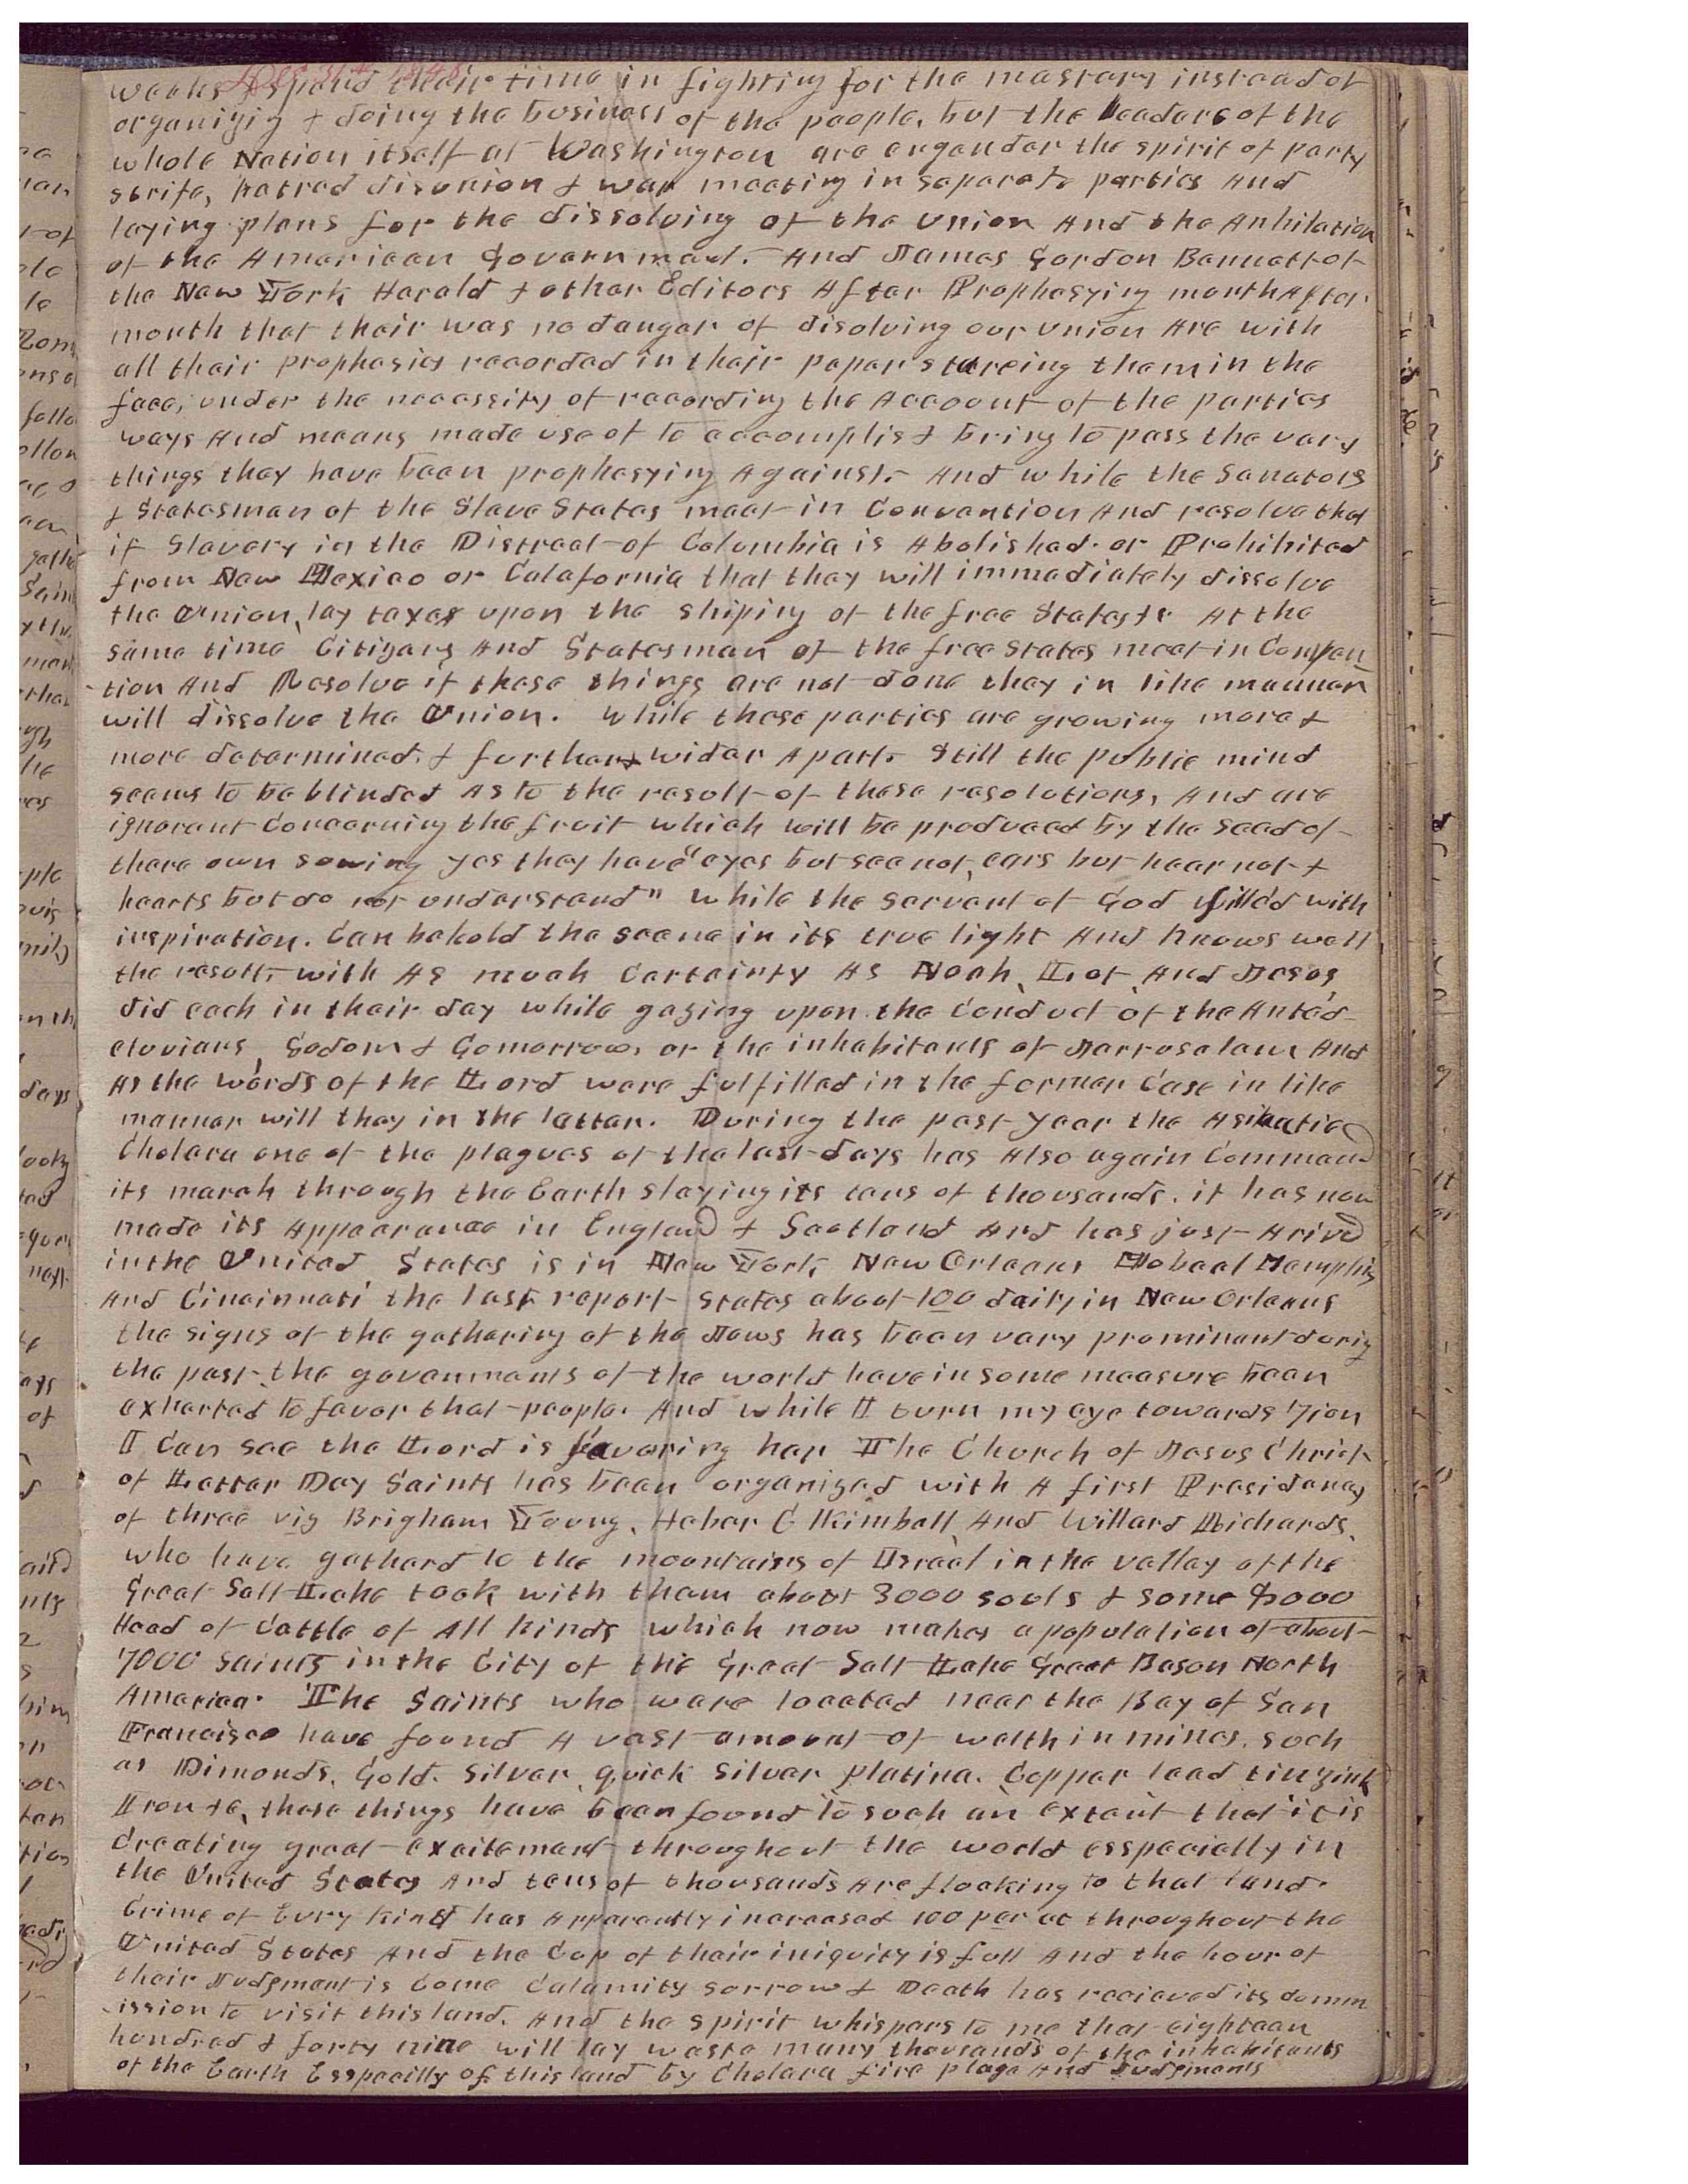 Dec 31st 1848
weeks & spend their time in fighting for the mastary instead of
organizig & doing the business of the people, but the leaders of the
whole Nation itself at Washington are engender the spirit of party
strife, hatred disunion & war meeting in seperate parties And
laying plans for the dissolving of the Union And the Anhilation
of the Ameriican Government. And James Gordon Bennett of
the New York Herald & other Editors After Prophesying month After
month that their was no danger of disolving our Union Are with
all their prophesies recorded in their paper stareing them in the
face, under the necessity of recording the Account of the parties
ways And means made use of to accomplis & bring to pass the very
things they have been prophesying Against. And while the Senators
& Statesman of the Slave States meet in Convention And resolve that
if Slavery in the Distreet of Columbia is Abolished or Prohibited
from New Mexico or Calafornia that they will immediately dissolve
the Union, lay taxes upon the shiping of the free States &c At the
same time Citizens And Statesman of the free States meet in Conven
tion And Resolve if these things are not done they in like mannar
will dissolve the Union. While these parties are growing more &
more determined & further & wider Apart. Still the public mind
seems to be blinded As to the result of these resolutions, And are
ignorant Concerning the fruit which will be produced by the seed of
there own sowing yes they have "eyes but see not, ears but hear not &
hearts but do not understand" while the servant of God filled with
inspiration. Can behold the scene in its true light And knows well
the result, with As much Certainty As Noah, Lot, And Jesus,
did each in their day while gazing upon the Conduct of the Anted-
eluvians, Sodom & Gomorrow, or the inhabitants of Jarrosalam And
As the words of the Lord were fulfilled in the former Case in like
manner will they in the latter. During the past year the Asiatic
Cholera one of the plagues of the last days has Also again Commenced
its march through the Earth slaying its tens of thousands. it has now
made its Appearance in England & Scotland And has just Arived
in the United States is in New York, New Orleans Mobeel Memphis
And Cincinnati the last report states about 100 daily in New Orleans
the signs of the gathering of the Jews has been very prominent durig
the past. the govenments of the world have in some measure been
exherted to favor that people. And while I turn my eye towards Zion
I Can see the Lord is favoring her The Church of Jesus Christ
of Latter Day Saints has been organized with A first Presidency
of three viz Brigham Young, Heber C Kimball And Willard Richards,
who have gatherd to the mountains of Israel in the valley of the
Great Salt Lake took with them about 3000 souls & some
Head of Cattle of All kinds which now makes a population of about
7000 Saints in the City of the Great Salt Lake Great Bason North
America. The Saints who ware located near the Bay of San
Francisco have found A vast amount of welth in mines. such
as Dimonds, Gold. Silver, quick Silver platina. Coppar lead tin zink
Iron &c, these things have been found to such an extent that it is
Creating great excitement throughout the world esspecially in
the United States And tens of thousands Are flocking to that land.
Crime of Evry kind has Apparently increased 100 per ct throughout the
United States And the Cup of their iniquity is full And the hour of
their Judgment is Come Calamity sorrow & Death has recieved its comm
-ission to visit this land. And the spirit whispers to me that eighteen
hundred & forty nine will lay waste many thousands of the inhabitants
of the Earth Esspecilly of this land by Cholera fire plage And Judgments